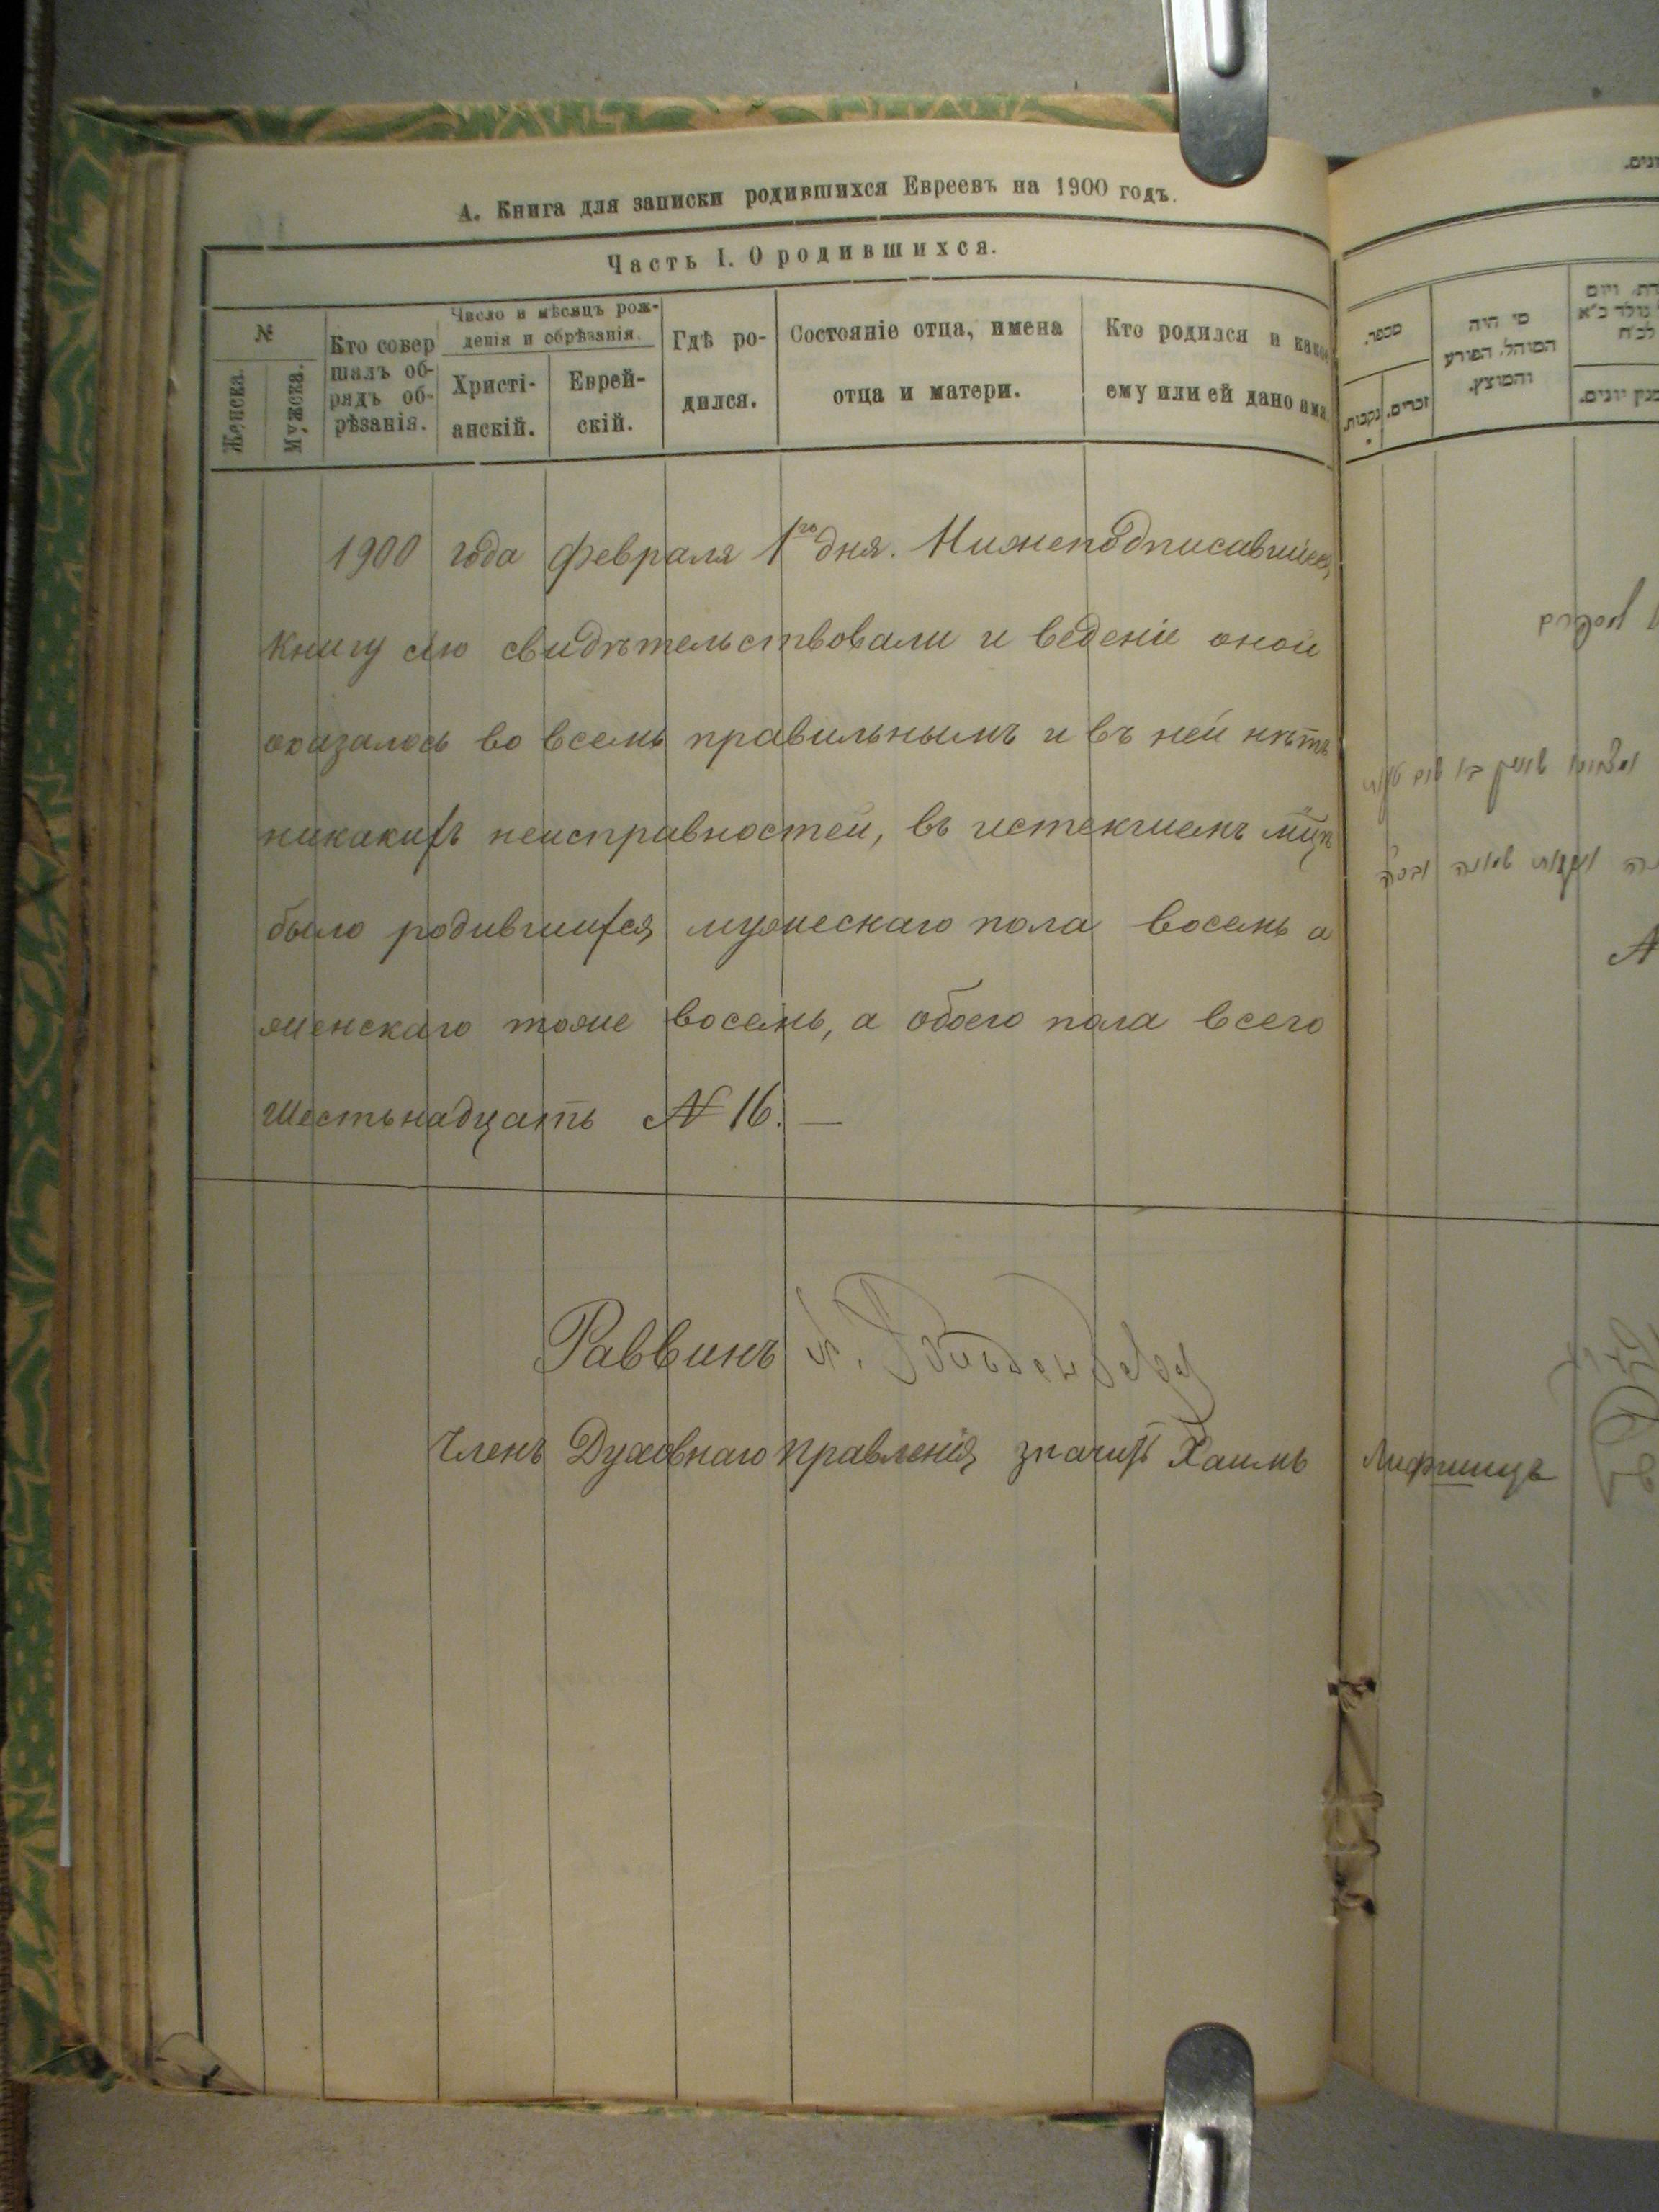 А. Книга для записки родившихся Евреевъ на 1900 годъ.
Часть I. О родившихся.
№
Женска.
Мужска.
Кто совер
шалъ об-
рядъ об-
рѣзанія.
Число и мѣсяцъ рож-
денія и обрѣзанія.
Христі-
анскій.
Еврей-
скій.
Гдѣ ро-
дился.
Состояніе отца, имена
отца и матери.
Кто родился и какое
ему или ей дано имя.
1900 года февраля 1го дня. Нижеподписавшіеся
книгу сію свидѣтельствовали и веденіе оной
оказалось во всемъ правильнымъ и въ ней нѣтъ
никакихъ неисправностей, въ истекшемъ мцѣ
было родившихся мужескаго пола восемь а
женскаго тоже восемь, а обоего пола всего
шестьнадцать № 16. —
Раввинъ
Членъ Духовнаго правленія значитъ Хаимъ Лифшицъ
מספר.
נקבות.
זכרים.
מי היה
המוהל, הפורע
והמוצץ.